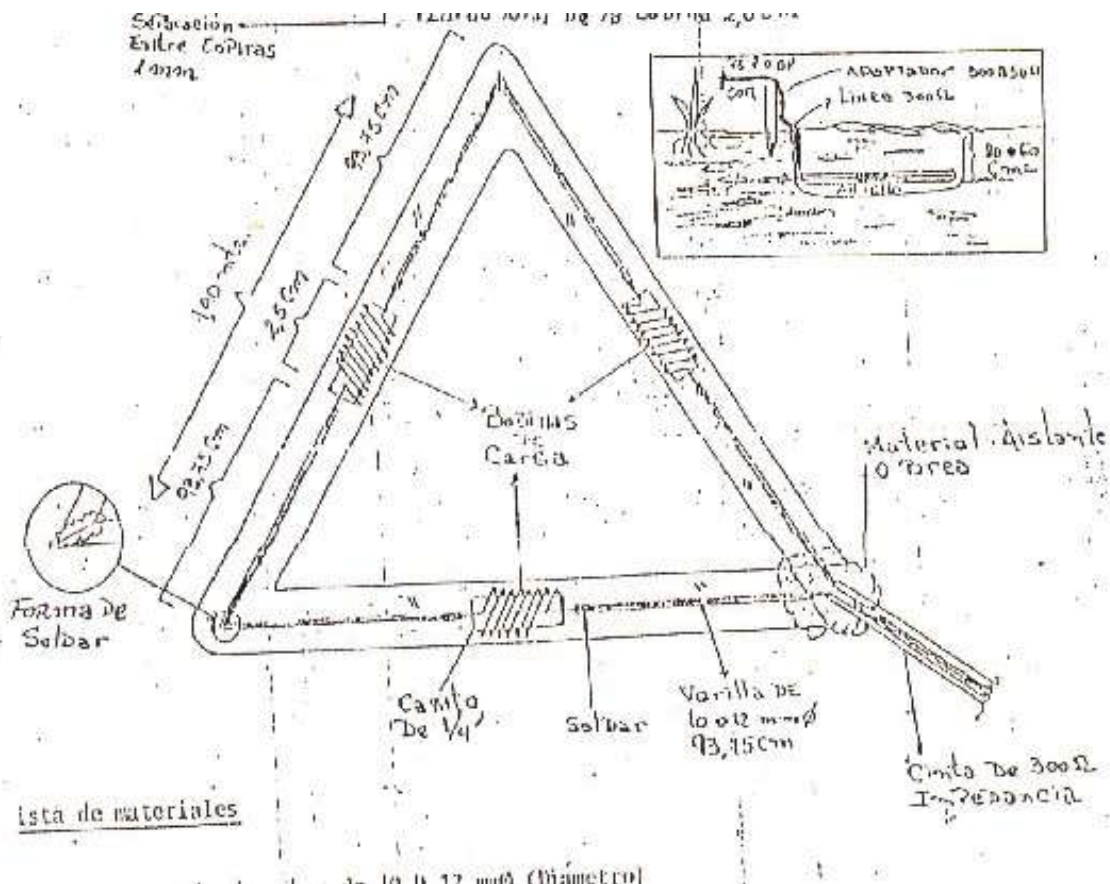 Separación
Entre Copiras
1 mm
Adaptador 300Ω50Ω
Linea 300Ω
Cms
100 mtr.
2,5 Cm
93,75 Cm
Bobinas
De
Carga
Material Aislante
o Brea
Forma De
Soldar
Cañito
De 1/4"
Soldar
Varilla DE
10 o 12 mm Ø
93,75 Cm
Cinta De 300Ω
Impedancia
ista de materiales
de 10 ó 12 mmØ (Diámetro)